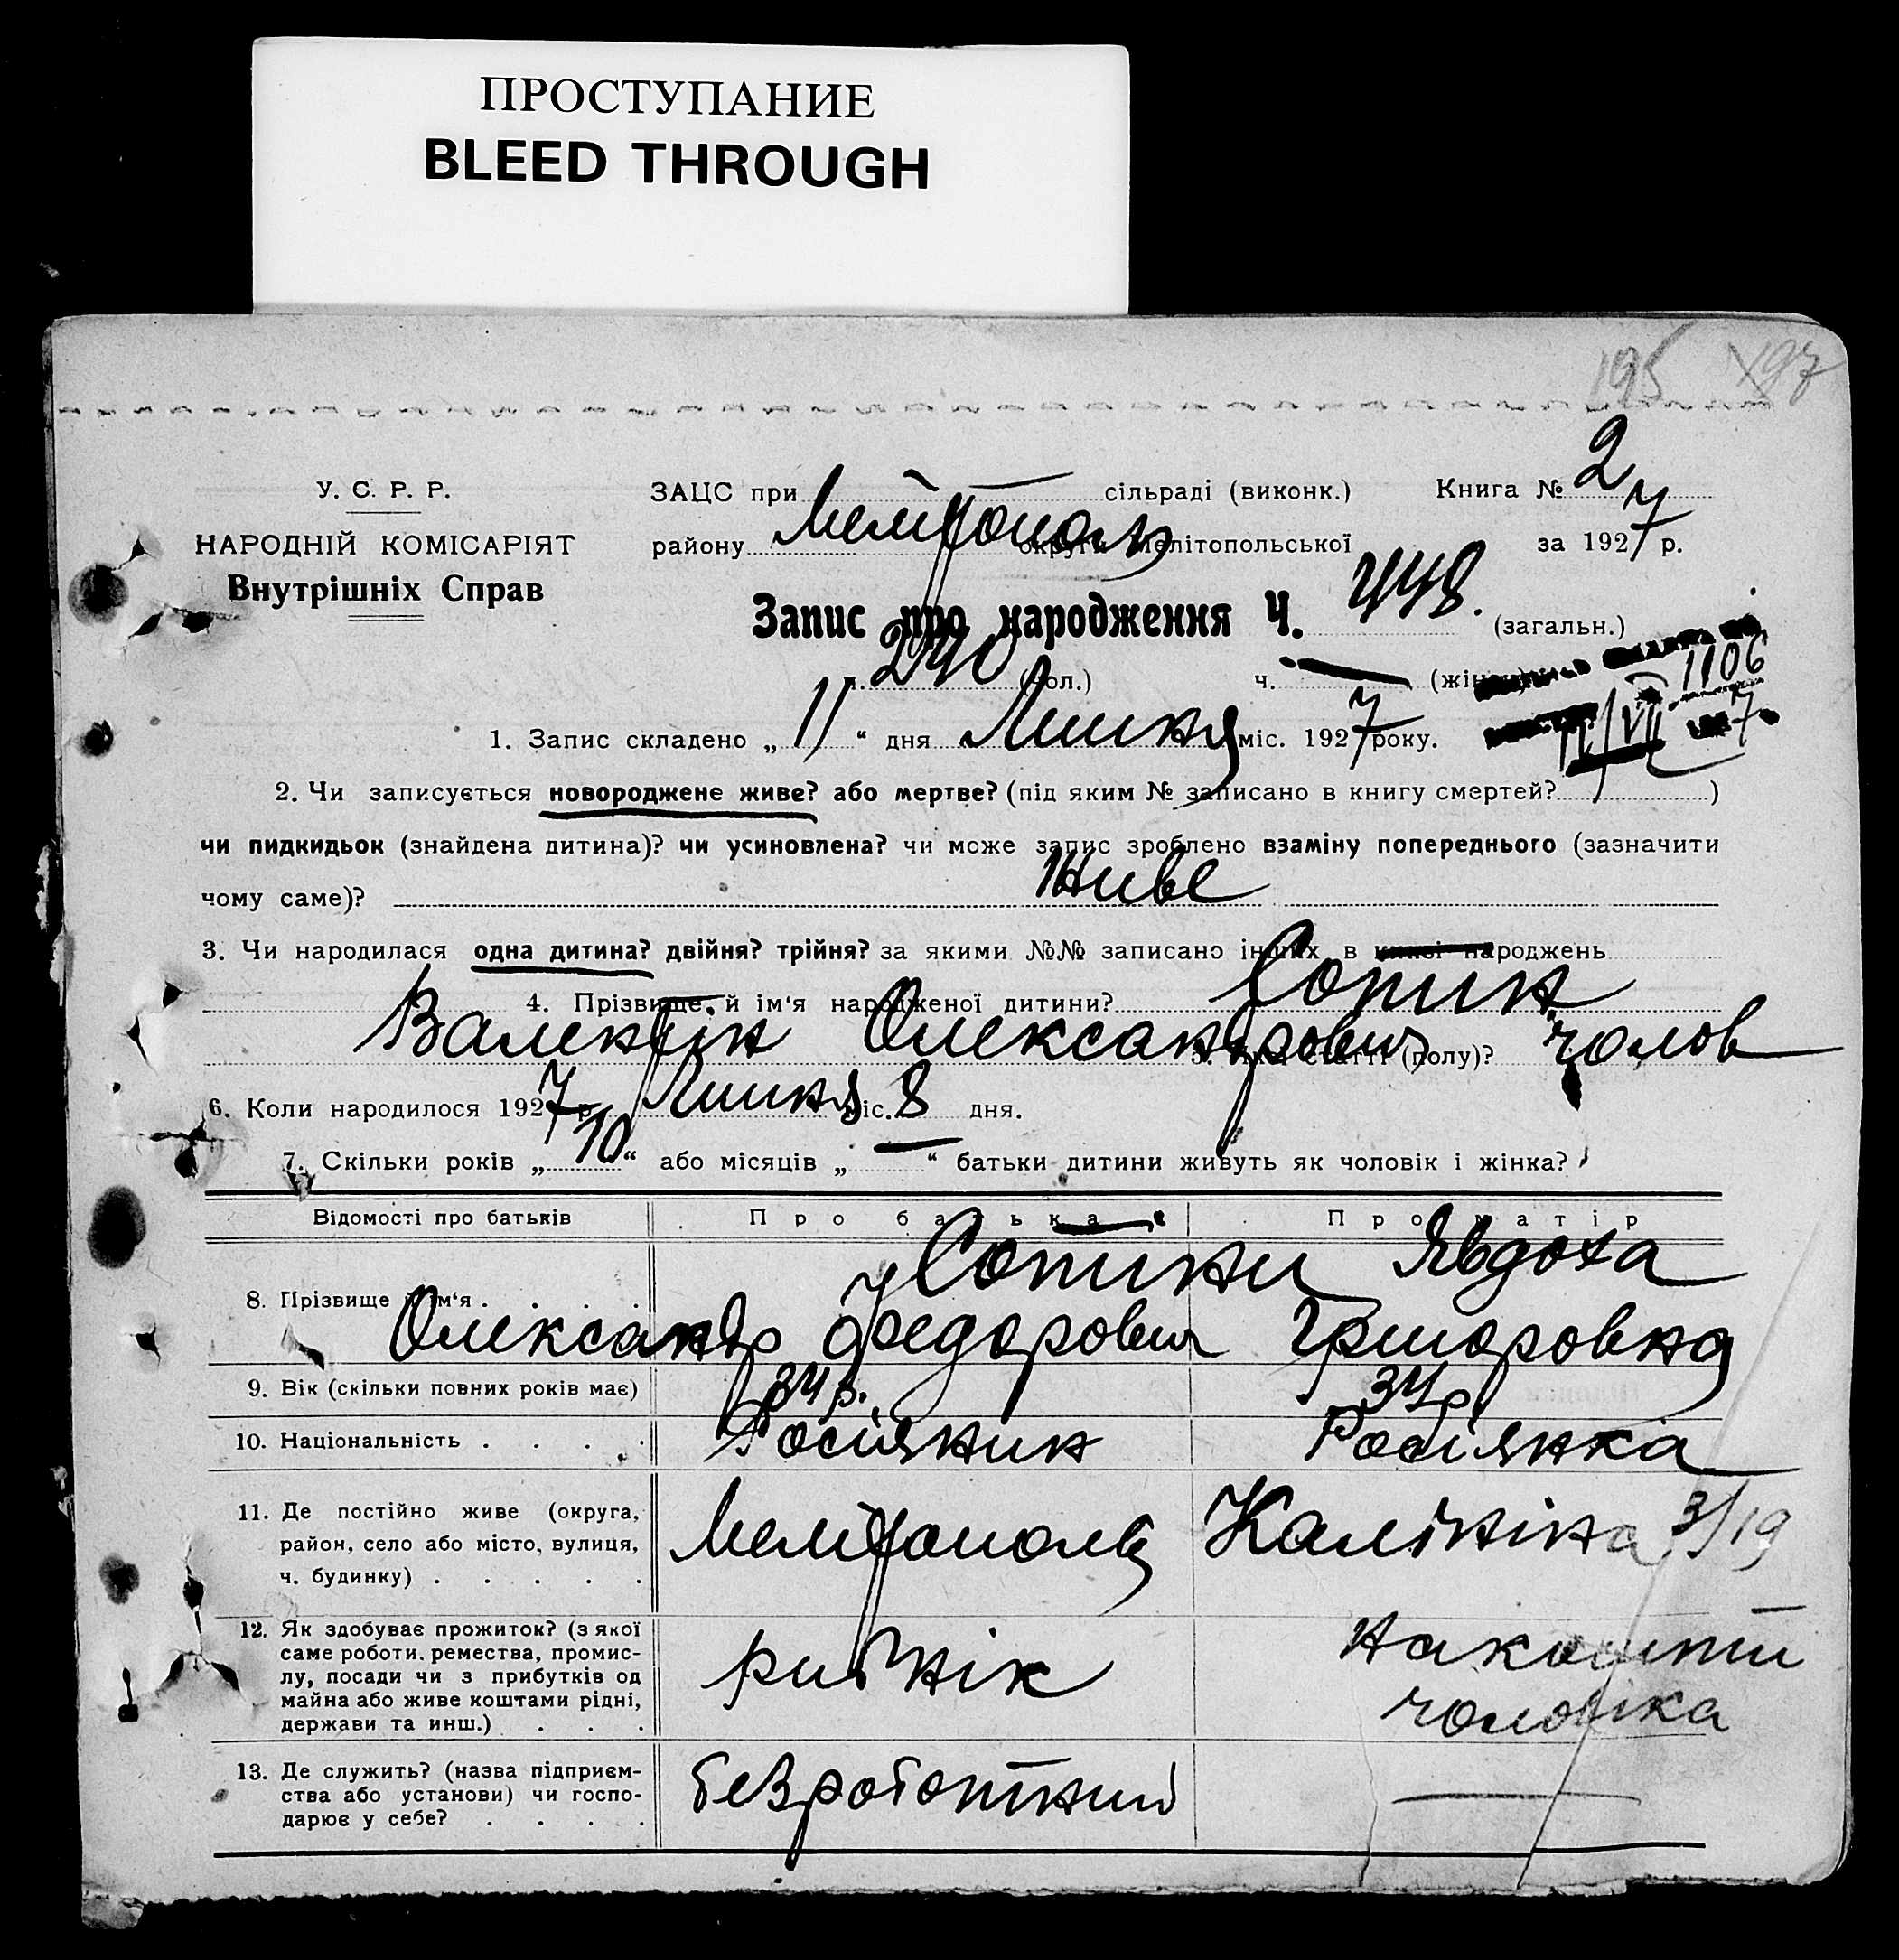 ПРОСТУПАНИЕ
BLEED THROUGH
195 197
У. С. Р. Р.
НАРОДНІЙ КОМІСАРІЯТ
Внутрішніх Справ
ЗАЦС при сільраді (виконк.) Книга № 2
району Мелітополь округи Мелітопольської за 1927 р.
Запис про народження Ч. 448. (загальн.)
ч. 240 (чол.) ч. — (жіноч.)
1106
1. Запис складено „11“ дня Липня міс. 1927 року.
11/VII 7
2. Чи записується новороджене живе? або мертве? (під яким № записано в книгу смертей? )
чи пидкидьок (знайдена дитина)? чи усиновлена? чи може запис зроблено взаміну попереднього (зазначити
чому саме)? живе
3. Чи народилася одна дитина? двійня? трійня? за якими №№ записано інших в книзі народжень
4. Прізвище й ім'я народженої дитини? Сотин
Валентін Олександрович 5. Якої статті (полу)? чолов
6. Коли народилося 1927 р. Липня міс. 8 дня.
7. Скільки років „10“ або місяців „—“ батьки дитини живуть як чоловік і жінка?
Відомості про батьків Про батька Про матір
8. Прізвище й ім'я . . . . Сотини Явдоха
Олександр Федорович Григоровна
9. Вік (скільки повних років має) 34 р. 34 р
10. Національність . . . . Росіянин Росіянка
11. Де постійно живе (округа,
район, село або місто, вулиця,
ч. будинку) . . . . . Мелітополь Калініна 3/19
12. Як здобуває прожиток? (з якої
саме роботи, ремества, промис-
лу, посади чи з прибутків од
майна або живе коштами рідні,
держави та инш.) . . . на кошти
чоловіка
13. Де служить? (назва підприєм-
ства або установи) чи госпо-
дарює у себе? . . . . безроботний —